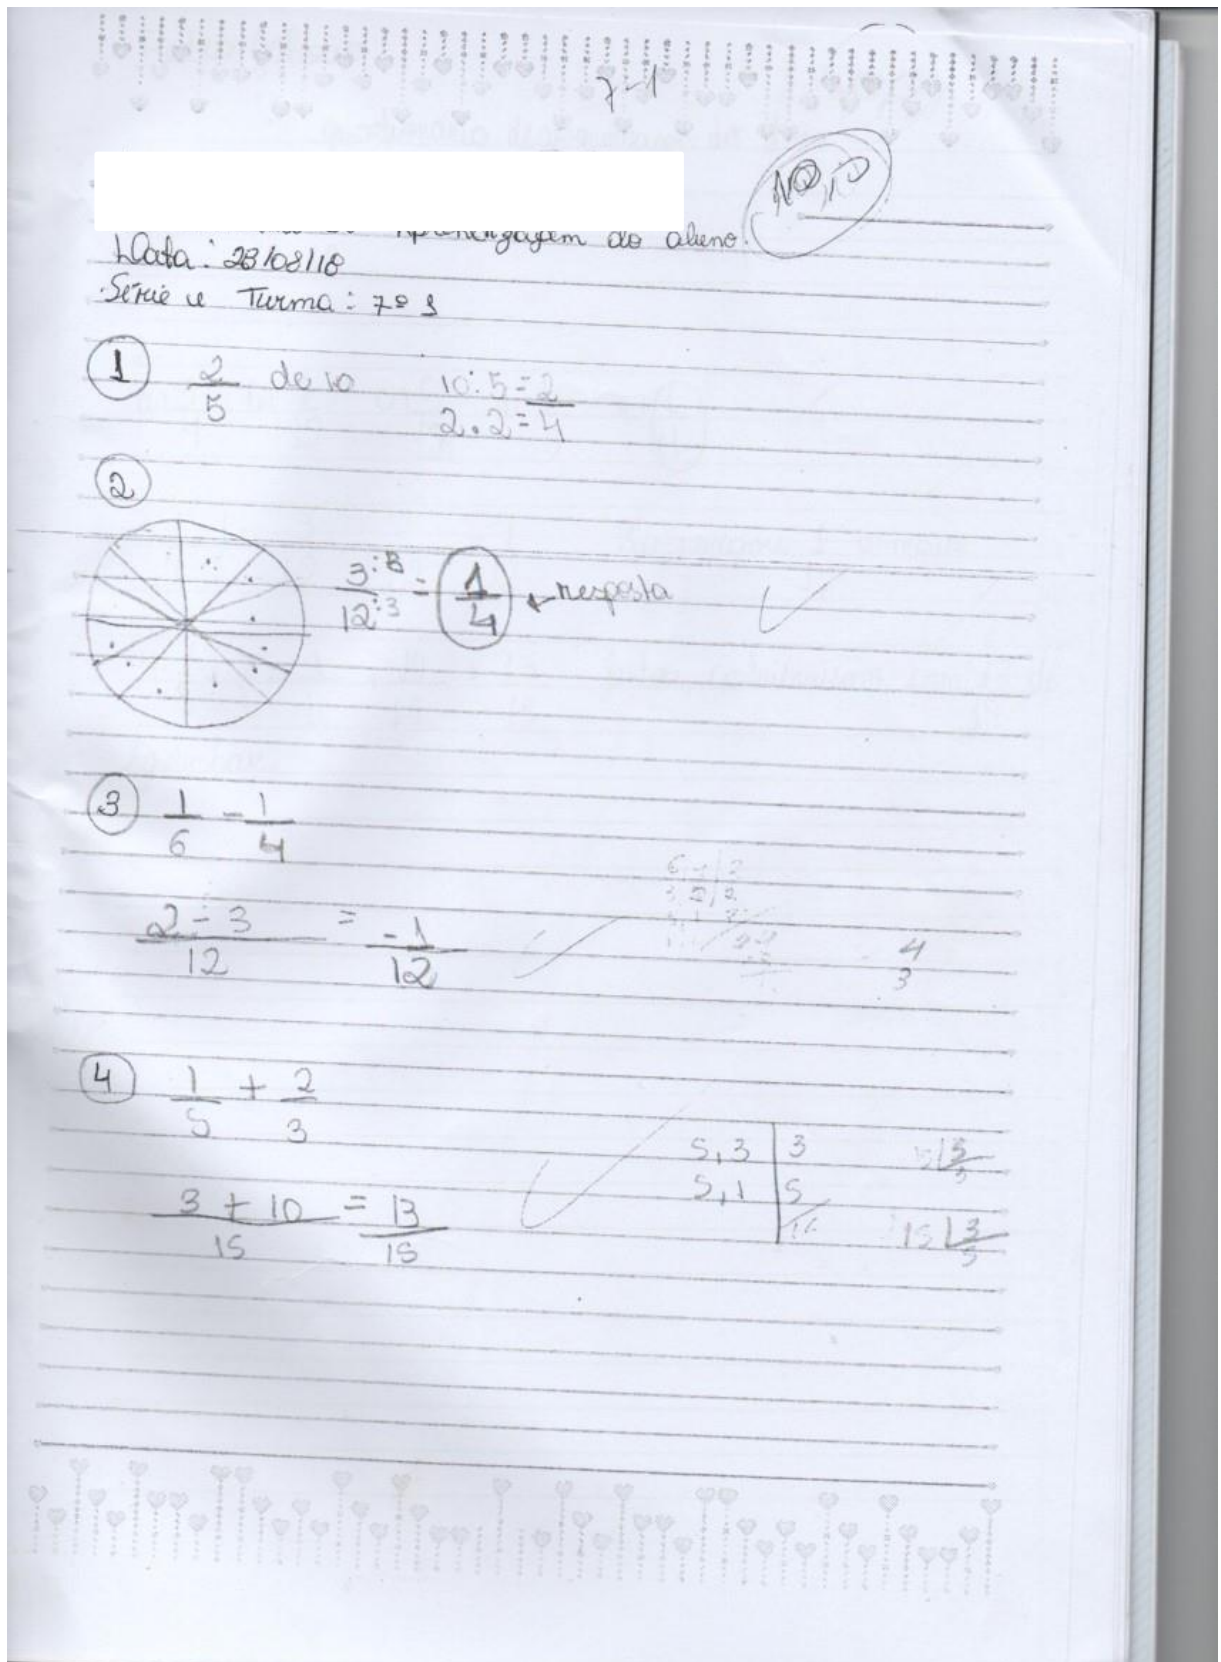 7-1
10,0
Aprendizagem do aluno.
Data: 23/08/18
Série e Turma: 7º 1
1 2/5 de 10 10:5=2
2.2=4
2
3:3/12:3 = 1/4 ← resposta
3 1/6 - 1/4
2-3/12 = -1/12
4
3
4 1/5 + 2/3
5,3 | 3
5,1 | 5
3+10/15 = 13/15
15 | 3
5